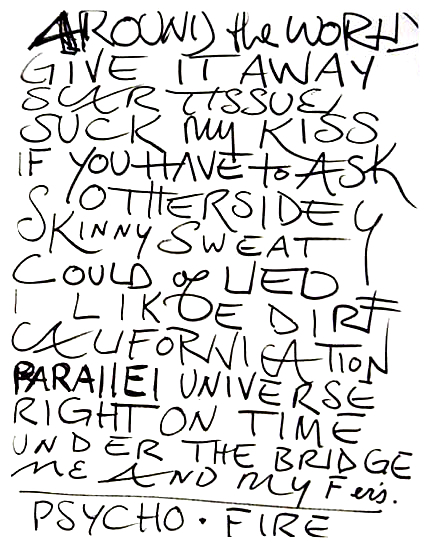 AROUND the WORLD
GIVE IT AWAY
SCAR TISSUE
SUCK MY KISS
IF YOU HAVE to ASK
OTHERSIDE
SKINNY SWEAT Y
COULD of LIED
I LIKE DIRT
CALIFORNICATION
PARAllEl UNIVERSE
RIGHT ON TIME
UNDER THE BRIDGE
ME AND MY F ers.
PSYCHO · FIRE